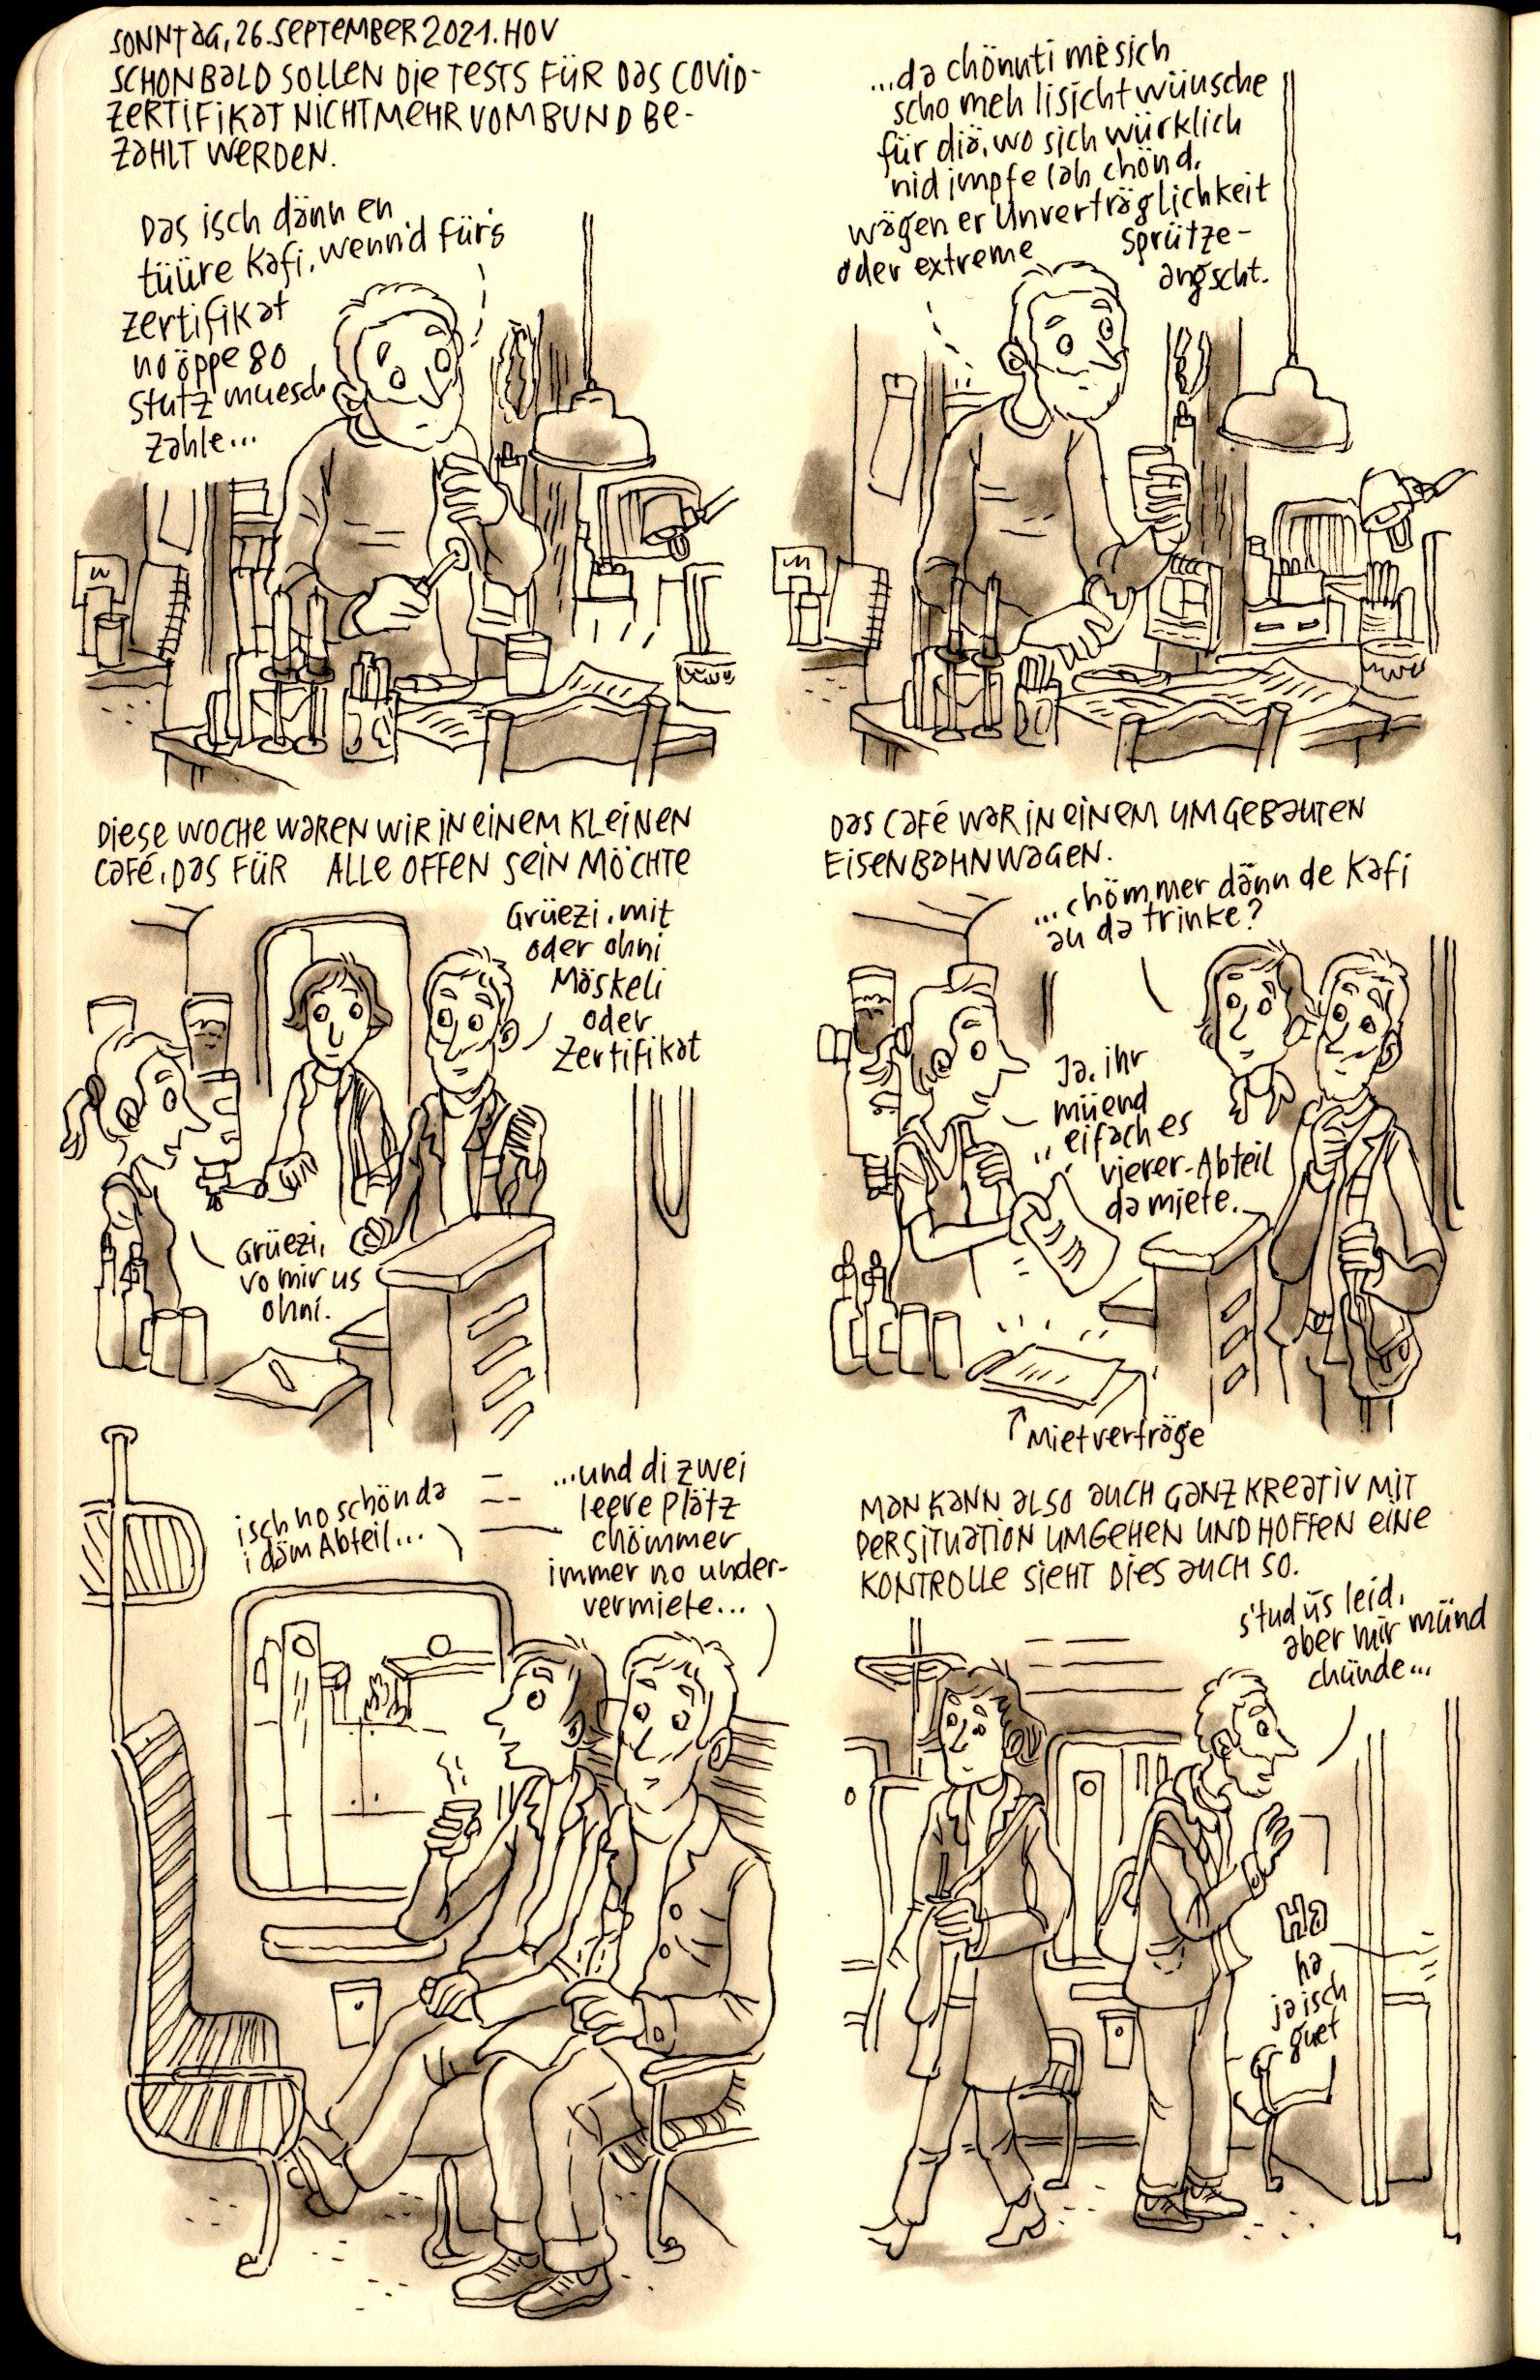 SONNTAG, 26. SEPTEMBER 2021. HOV
SCHON BALD SOLLEN DIE TESTS FÜR DAS COVID-
ZERTIFIKAT NICHT MEHR VOM BUND BE-
ZAHLT WERDEN.
Das isch dänn en
tüüre Kafi, wenn'd für's
Zertifikat
no öppe 80
Stutz muesch
zahle...
...da chönnti me sich
scho meh lisicht wünsche
für diä, wo sich würklich
nid impfe lah chönd,
wägen er Unverträglichkeit
oder extreme Sprütze-
angscht.
DIESE WOCHE WAREN WIR IN EINEM KLEINEN
CAFÉ, DAS FÜR ALLE OFFEN SEIN MÖCHTE
Grüezi, mit
oder ohni
Mäskeli
oder
Zertifikat
Grüezi,
vo mir us
ohni.
DAS CAFÉ WAR IN EINEM UMGEBAUTEN
EISENBAHNWAGEN.
...chömmer dänn de Kafi
au da trinke?
Ja, ihr
müend
eifach es
vierer-Abteil
da miete...
↑ Mietverträge
isch no schön da
i däm Abteil...
...und di zwei
leere Plätz
chömmer
immer no under-
vermiete...
MAN KANN ALSO AUCH GANZ KREATIV MIT
DER SITUATION UMGEHEN UND HOFFEN EINE
KONTROLLE SIEHT DIES AUCH SO.
s'tud üs leid,
aber mir münd
chünde...
Ha
ha
ja isch
guet